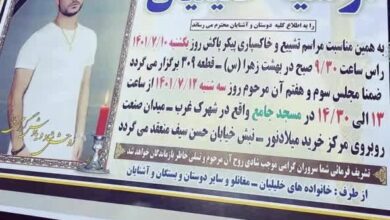 را به اطلاع کلیه دوستان و آشنایان محترم می رساند
به همین مناسبت مراسم تشییع و خاکسپاری پیکر پاکش روز یکشنبه ۱۴۰۱/۷/۱۰
راس ساعت ۹/۳۰ صبح در بهشت زهرا (س) - قطعه ۳۰۹ برگزار می گردد
ضمنا مجلس سوم و هفتم آن مرحوم روز سه شنبه ۱۴۰۱/۷/۱۲ از ساعت
۱۳ الی ۱۴/۳۰ در مسجد جامع واقع در شهرک غرب - میدان صنعت
روبروی مرکز خرید میلادنور - نبش خیابان حسن سیف منعقد می گردد
تشریف فرمائی شما سروران گرامی موجب شادی روح آن مرحوم و تسلی خاطر بازماندگان خواهد شد
از طرف : خانواده های خلیلیان - مغانلو و سایر دوستان و بستگان و آشنایان